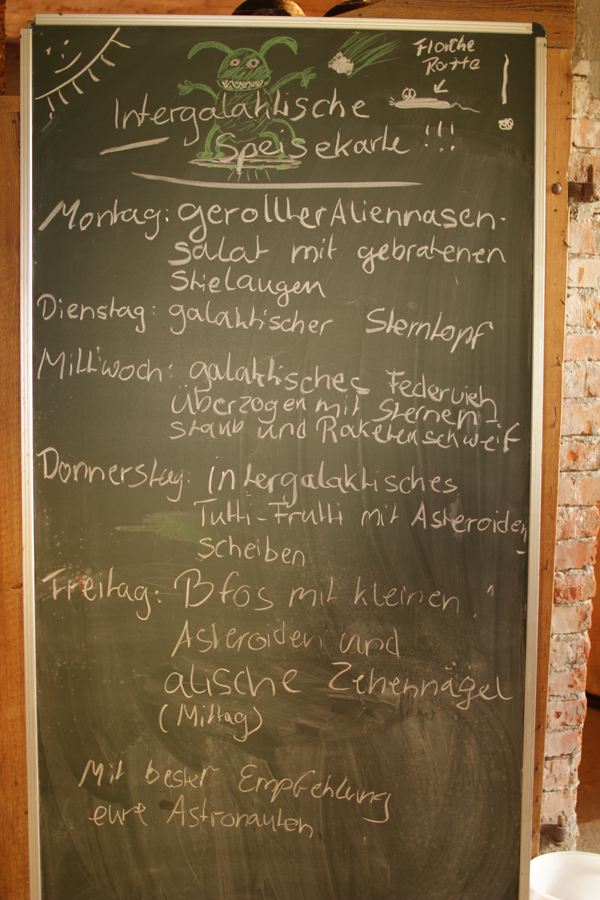 Florche
Ratte
Intergalaktische
Speisekarte !!!
Montag: gerollter Aliennasen-
salat mit gebratenen
Stielaugen
Dienstag: galaktischer Sterntopf
Mittwoch: galaktisches Federvieh
überzogen mit Sternen-
staub und Raketenschweif
Donnerstag: intergalaktisches
Tutti-Frutti mit Asteroiden-
scheiben
Freitag: Bfos mit kleinen
Asteroiden und
alische Zehennägel
(Mittag)
Mit bester Empfehlung
eure Astronauten